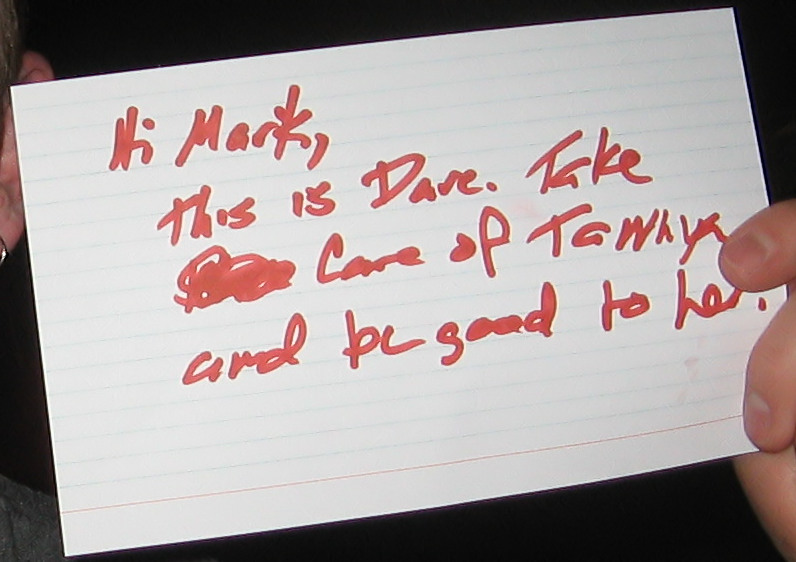 Hi Mark,
this is Dave. Take
Care of Tawnya
and be good to her.